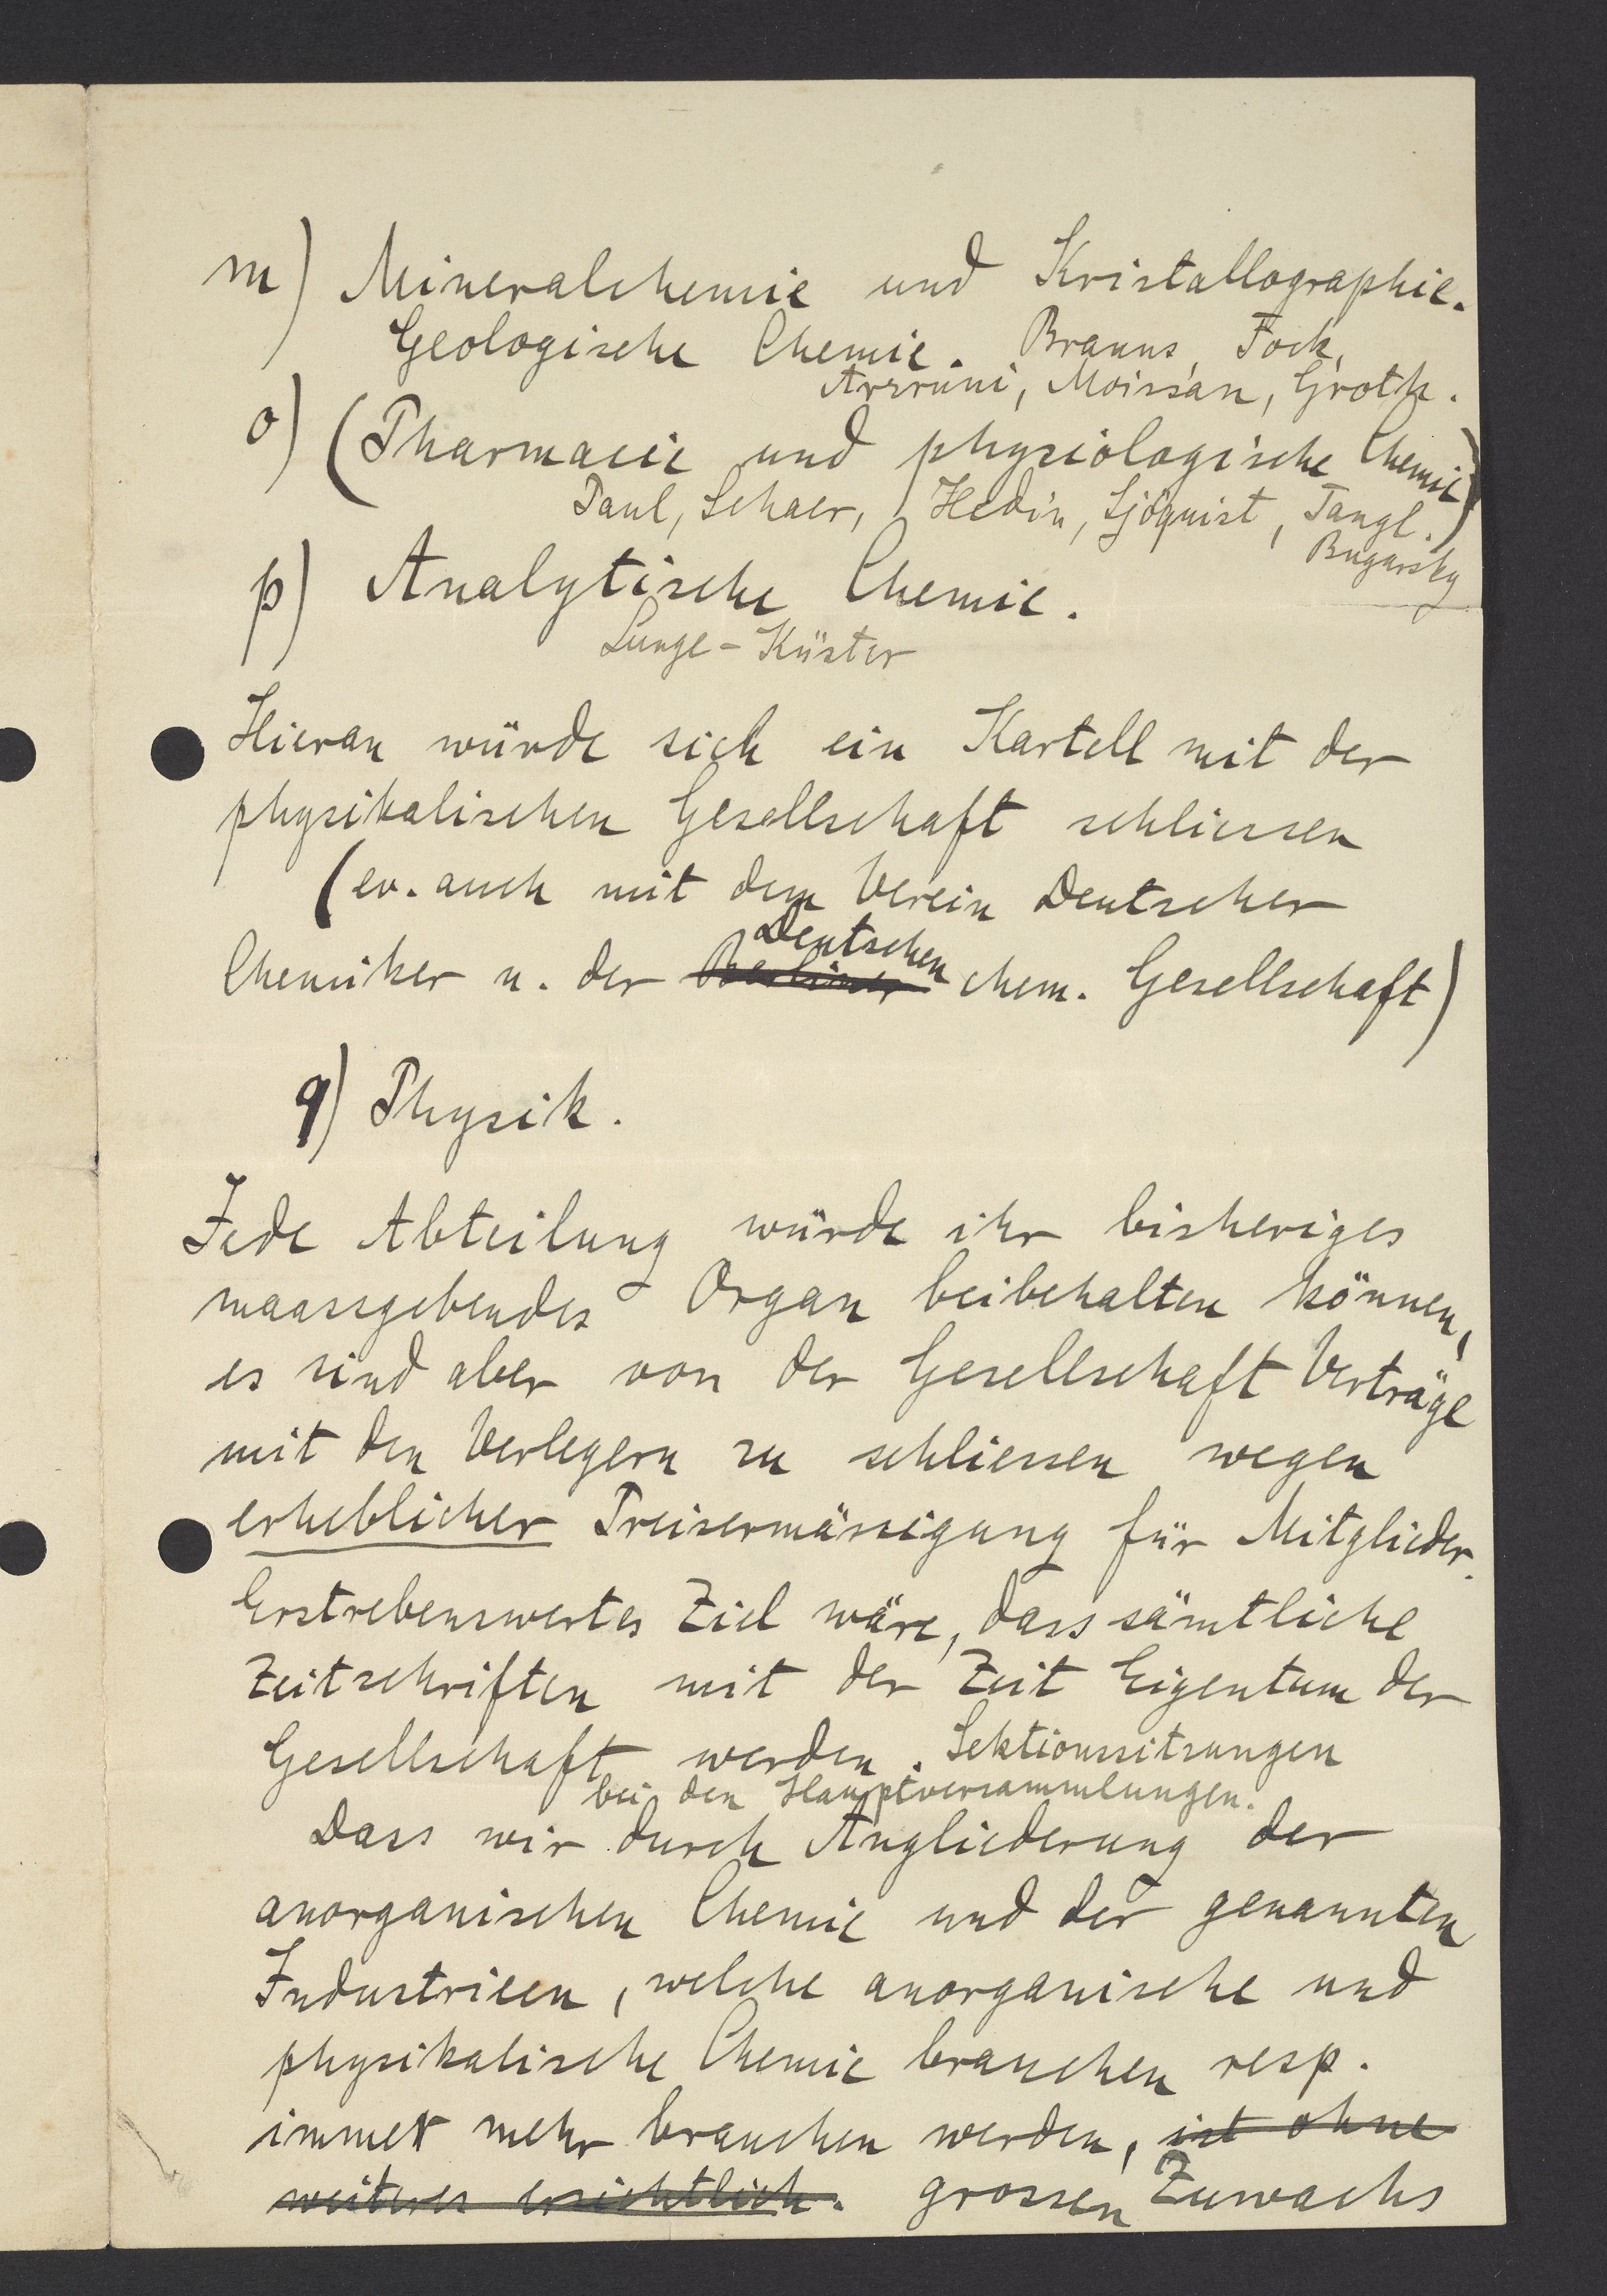 m) Mineralchemie und Kristallographie.
Geologische Chemie. Brauns, Fock,
Arzruni, Moissan, Groth.
o) (Pharmacie und physiologische Chemie)
Paul, Schaer, Hedin, Sjöquist, Tangl.
Bugarsky
p) Analytische Chemie.
Lunge-Küster
Hieran würde sich ein Kartell mit der
physikalischen Gesellschaft schliessen
(ev. auch mit dem Verein Deutscher
Deutschen
Chemiker u. der Berliner chem. Gesellschaft)
q) Physik.
Jede Abteilung würde ihr bisheriges
maassgebendes Organ beibehalten können,
es sind aber von der Gesellschaft Verträge
mit den Verlegern zu schliessen wegen
erheblicher Preisermässigung für Mitglieder.
Erstrebenswertes Ziel wäre, dass sämtliche
Zeitschriften mit der Zeit Eigentum der
Gesellschaft werden. Sektionssitzungen
bei den Hauptversammlungen.
Dass wir durch Angliederung der
anorganischen Chemie und der genannten
Industrieen, welche anorganische und
physikalische Chemie brauchen resp.
immer mehr brauchen werden, ist ohne
weiteres ersichtlich. grossen Zuwachs